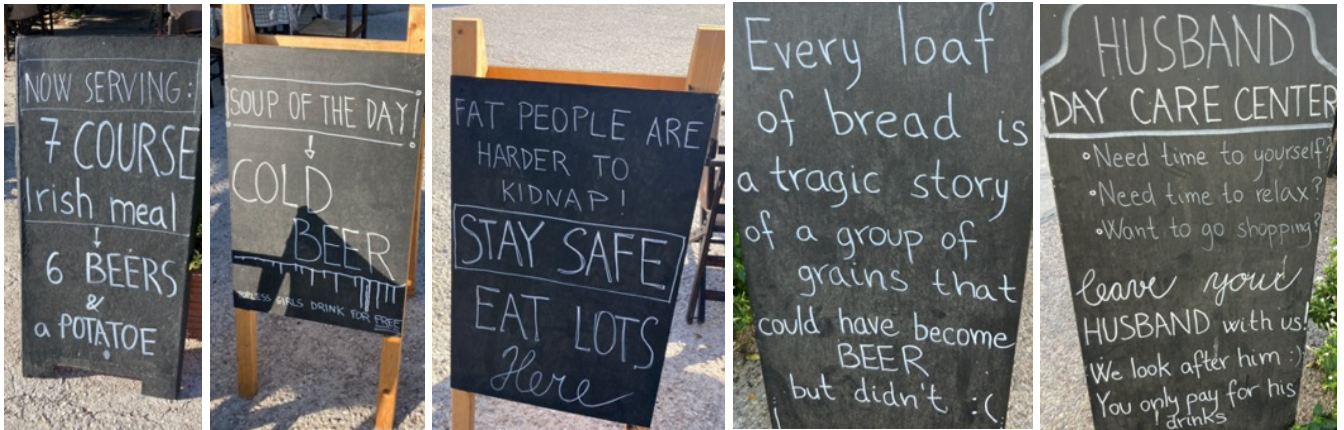 NOW SERVING:
7 COURSE
Irish meal
6 BEERS
&
a POTATOE
SOUP OF THE DAY!
COLD
BEER
GIRLS DRINK FOR FREE
FAT PEOPLE ARE
HARDER TO
KIDNAP!
STAY SAFE
EAT LOTS
Here
Every loaf
of bread is
a tragic story
of a group of
grains that
could have become
BEER
but didn't :(
HUSBAND
DAY CARE CENTER
•Need time to yourself?
•Need time to relax?
•Want to go shopping?
leave your
HUSBAND with us!
We look after him :)
You only pay for his
drinks